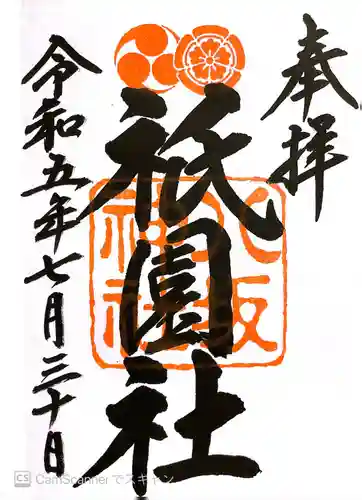 奉拝
祇園社
八坂神社
令和五年七月三十日
CS CamScannerでスキャン